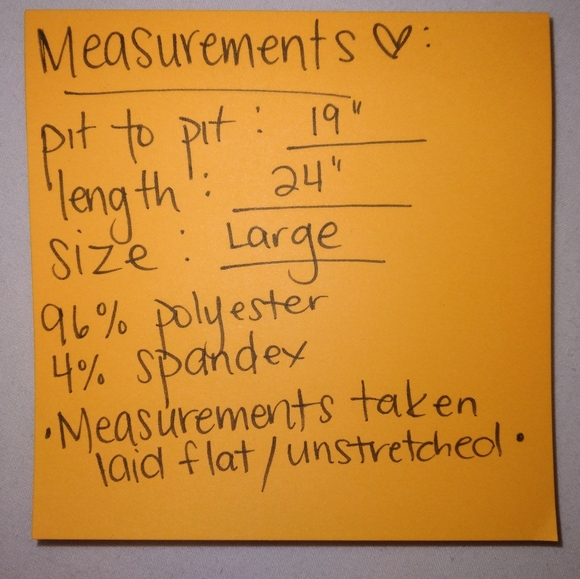 Measurements ♡:
pit to pit: 19"
length: 24"
size: Large
96% polyester
4% spandex
•Measurements taken
laid flat/unstretched•